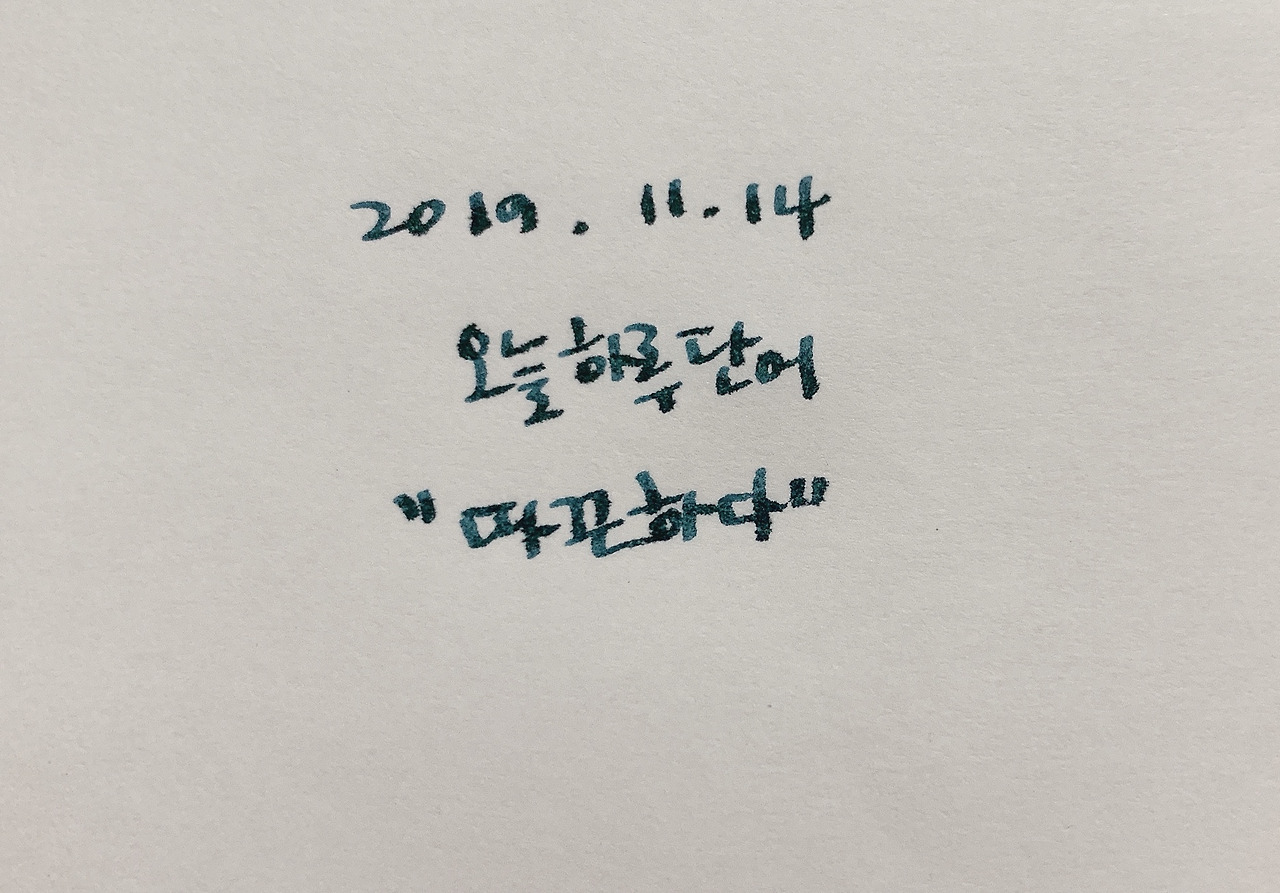 2019. 11.14
오늘하루단어
"따끈하다"